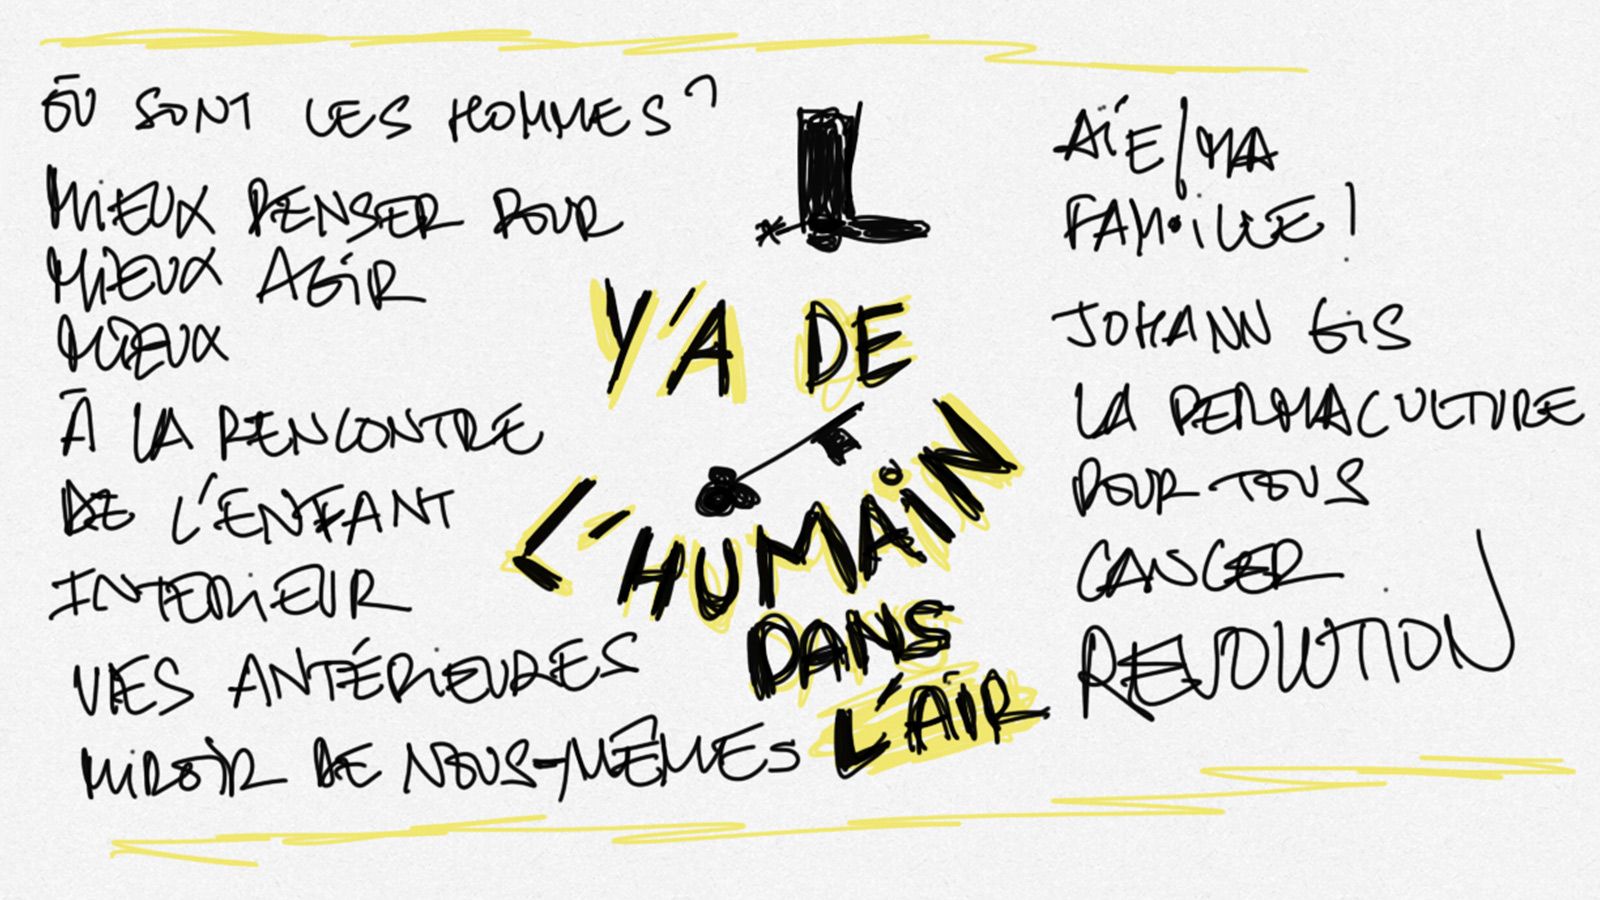 OÙ SONT LES HOMMES ?
MIEUX PENSER POUR
MIEUX AGIR
MIEUX
À LA RENCONTRE
DE L'ENFANT
INTERIEUR
VIES ANTÉRIEURES
MIROIR DE NOUS-MÊMES
Y'A DE
L'HUMAIN
DANS
L'AIR
AÏE/MA
FAMILLE !
JOHANN GIS
LA PERMACULTURE
POUR TOUS
CANCER
REVOLUTION